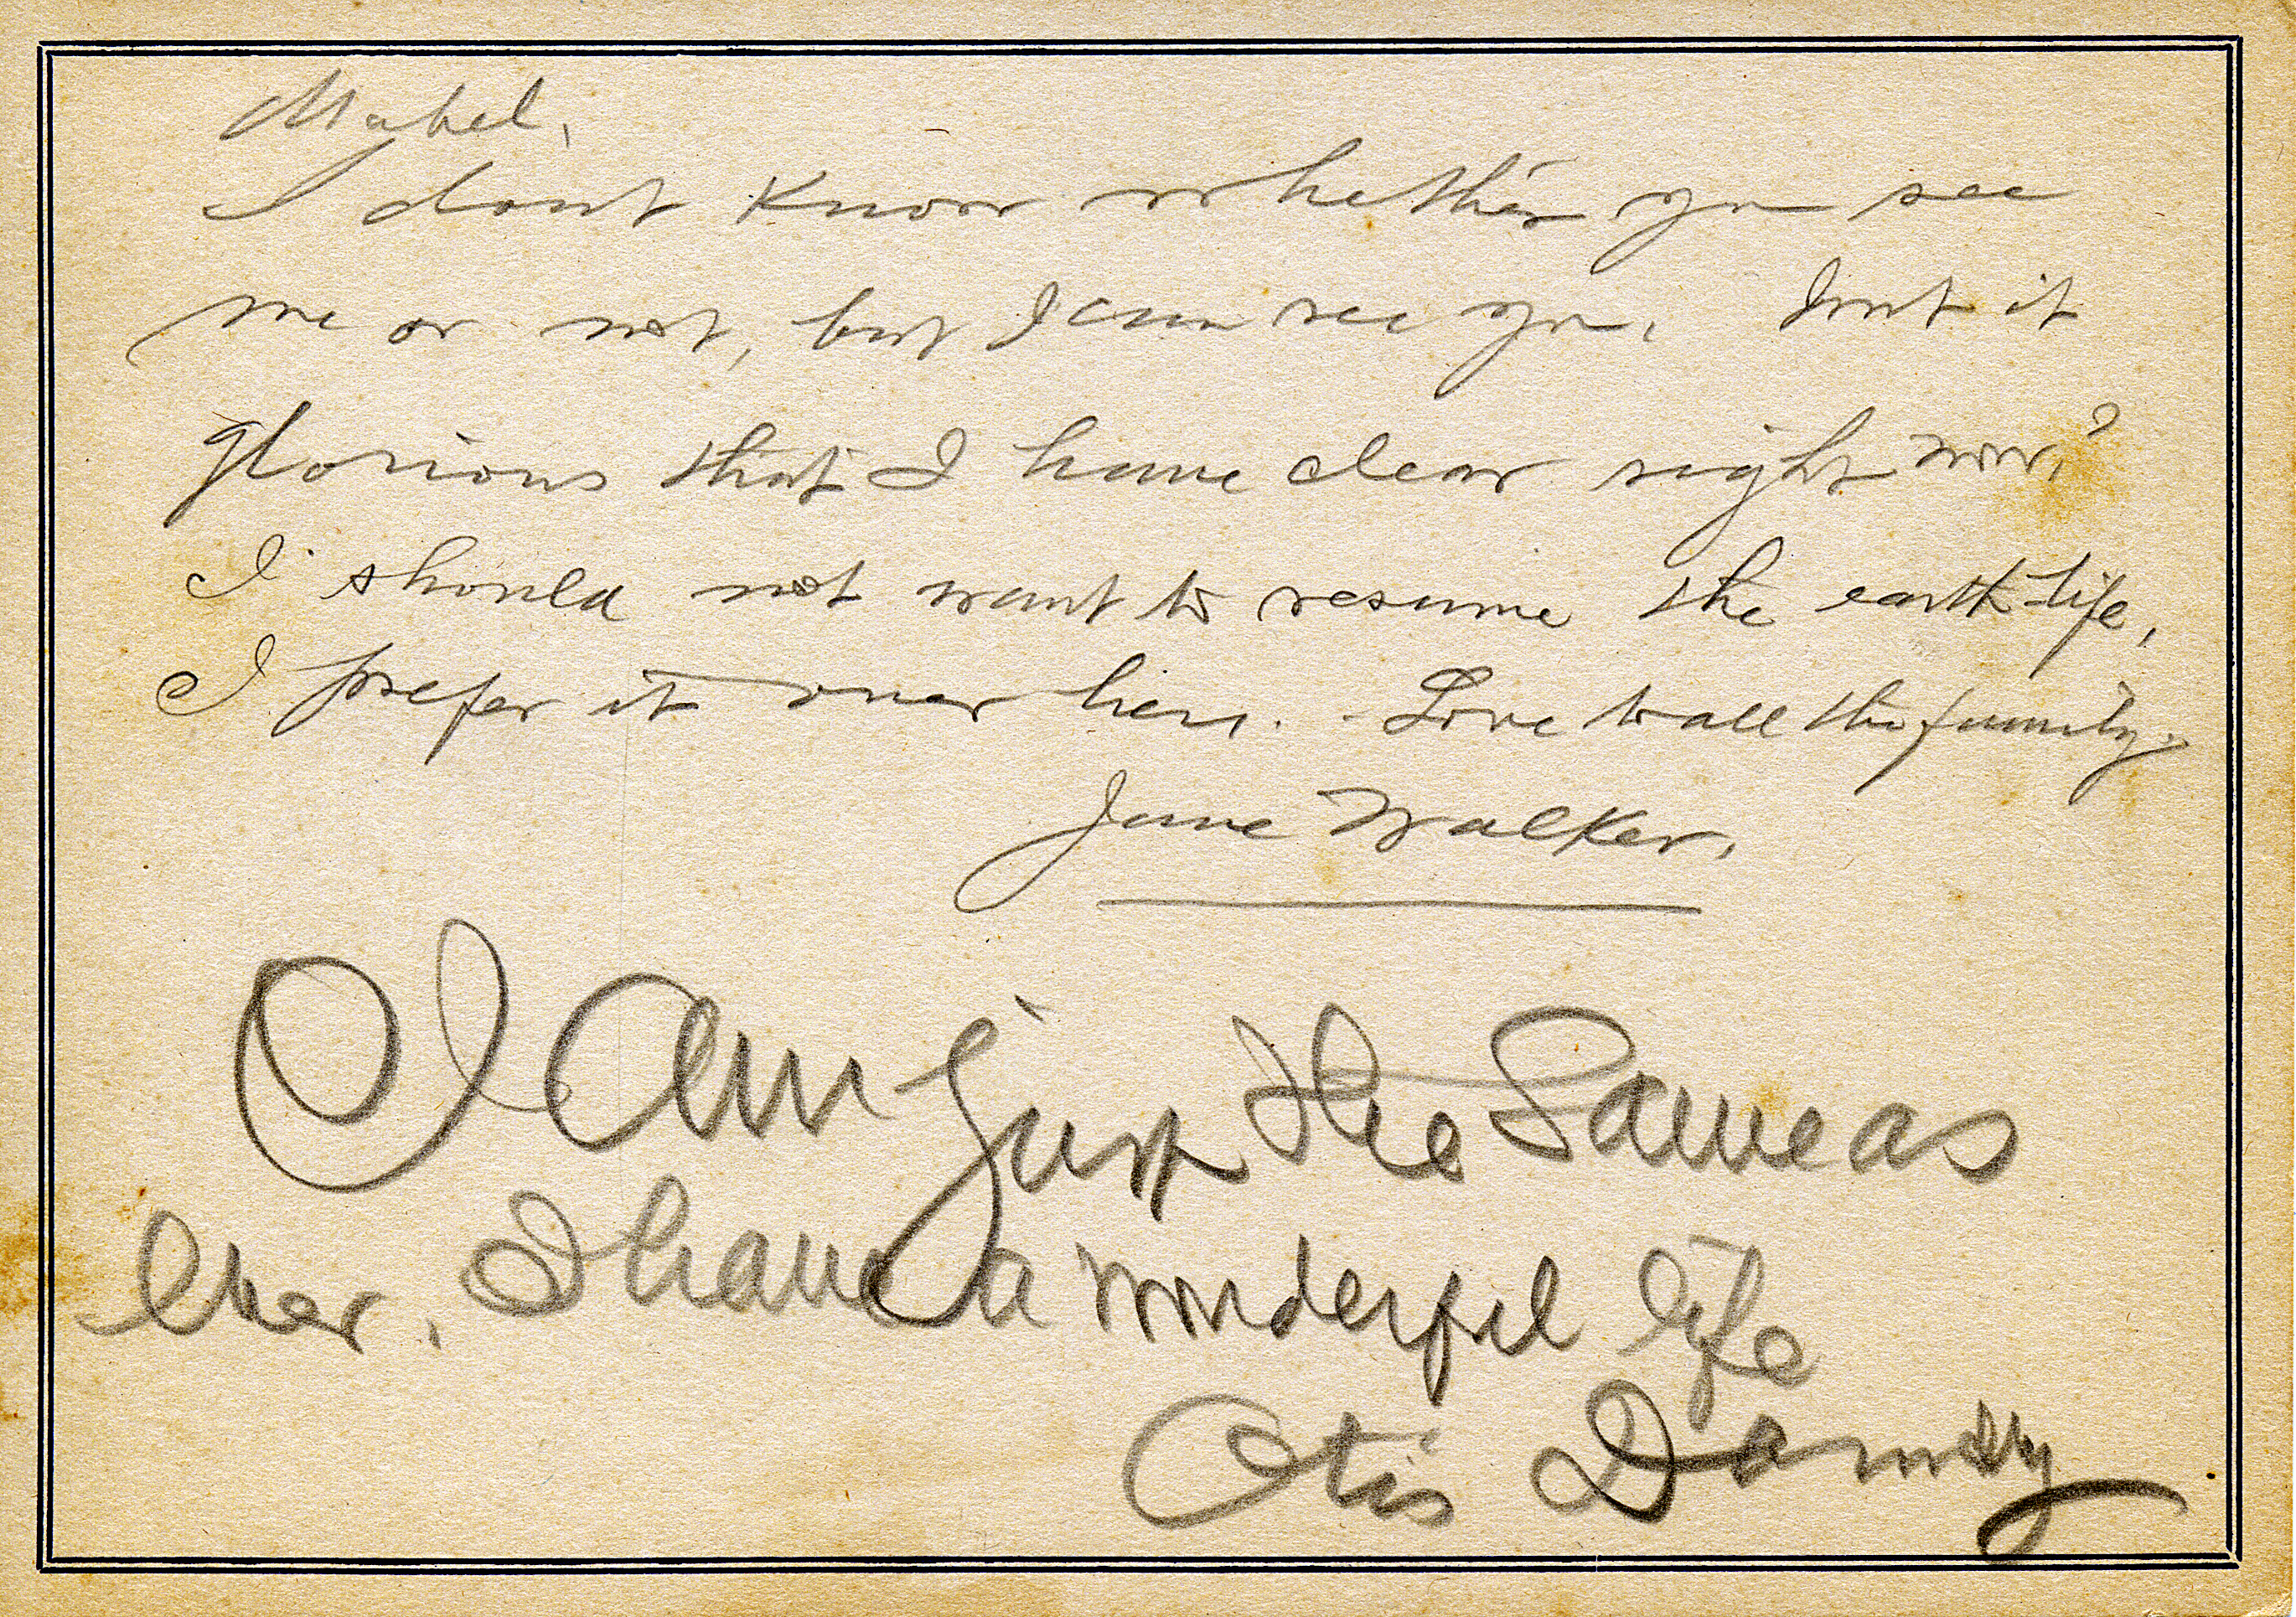 Mabel,
I dont know whether you see
me or not, but I can see you. Isnt it
glorious that I have clear sight now?
I should not want to resume the earth life,
I prefer it over here. - Love to all the family.
Jane Walker.
I am just the Same as
Ever. I have a wonderful life
Otis